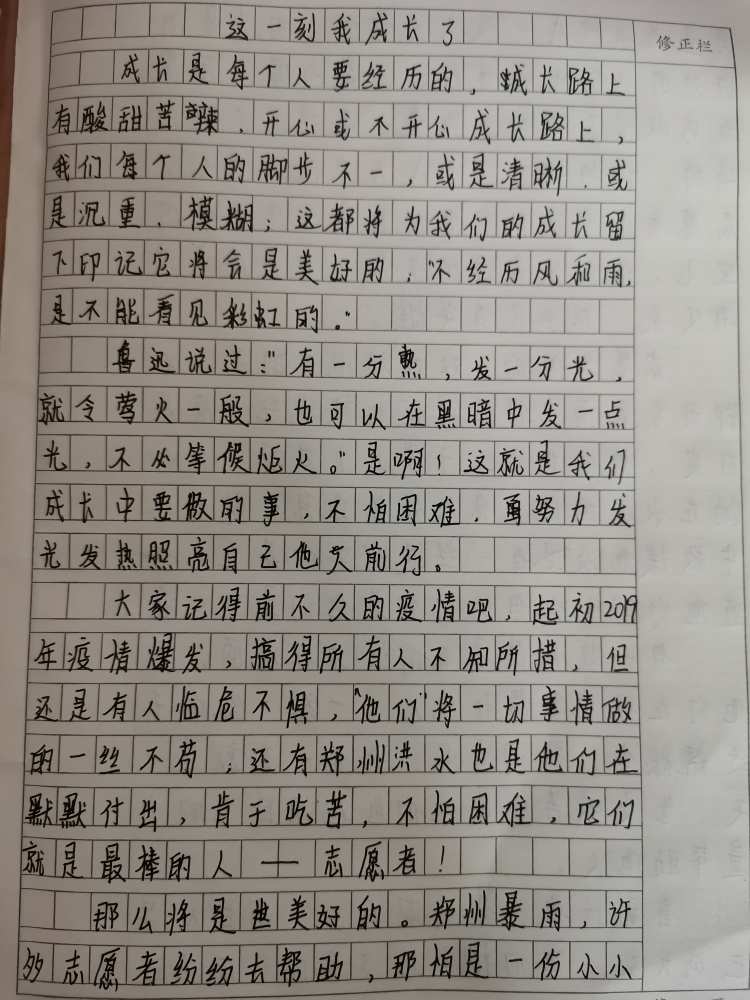 这一刻我成长了
修正栏
成长是每个人要经历的，成长路上
有酸甜苦辣、开心或不开心成长路上，
我们每个人的脚步不一，或是清晰、或
是沉重、模糊；这都将为我们的成长留
下印记它将会是美好的，“不经历风和雨，
是不能看见彩虹的。”
鲁迅说过：“有一分熱，发一分光，
就令莺火一般，也可以在黑暗中发一点
光，不必等候炬火。”是啊！这就是我们
成长中要做的事，不怕困难，勇努力发
光发热照亮自己他人前行。
大家记得前不久的疫情吧，起初2019
年疫情爆发，搞得所有人不知所措，但
还是有人临危不惧，“他们”将一切事情做
的一丝不苟；还有郑州洪水也是他们在
默默付出，肯于吃苦，不怕困难，它们
就是最棒的人——志愿者！
那么将是美好的。郑州暴雨，许
多志愿者纷纷去帮助，那怕是一份小小